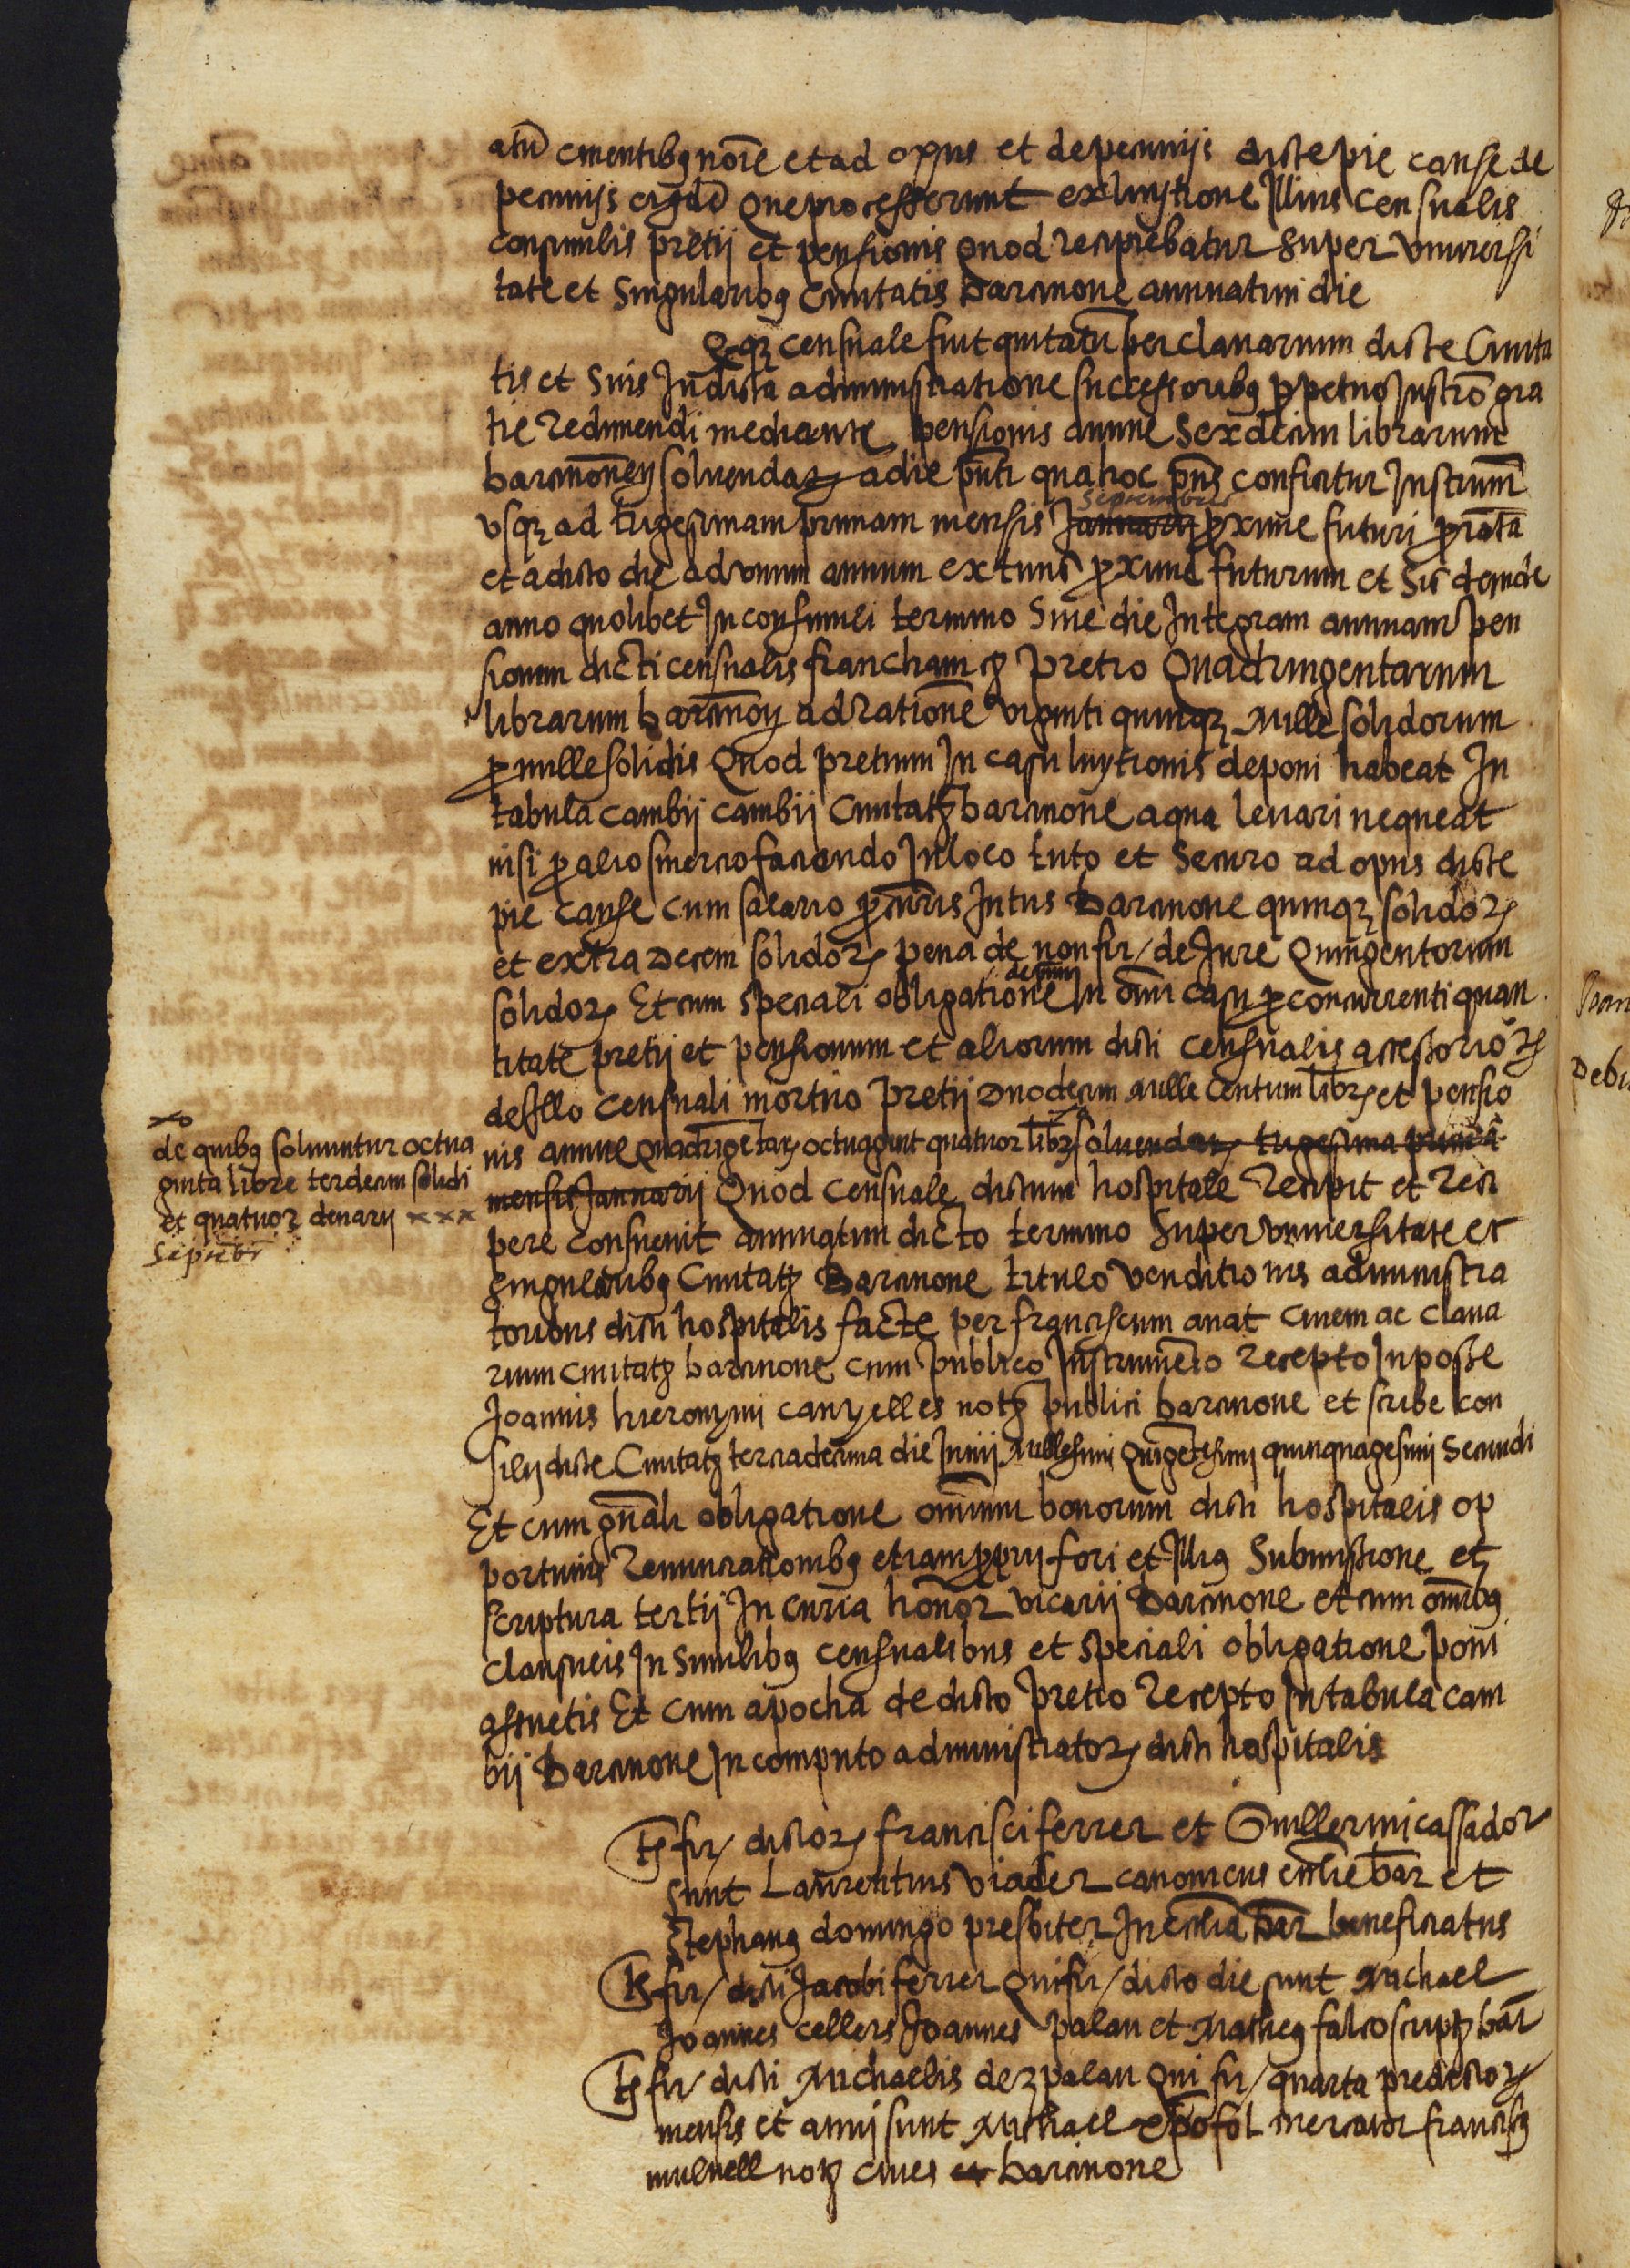 atum ementibus nomine et ad opus et de pecunijs dicte pie cause de
pecunijs eiusdem que processerunt ex luytione Illius Censualis
consimilis pretij et pensionis quod recipiebatur super vniuersi
tate et Singularibus Ciuitatis Barcinone annuatim die
Quodquidem censuale fuit quitatum per clauarium dicte Ciuita
tis et Suis In dicta administratione successoribus perpetuo Instrumento gra
tie Redimendi mediante pensionis annue Sexdecim librarum
barcinonensium soluendarum a die presenti qua hoc presens conficitur Instrumentum
vsque ad trigesimam primam mensis Januarij Septembris proxime futuri prorata
et a dicto die ad vnum annum extunc proxime futurum et Sic deinde
anno quolibet In consimili termino Siue die Integram annuam pen
sionem dicti censualis francham etc pretio Quadringentarum
librarum barcinonensium ad Rationem viginti quinque Mille solidorum
pro mille solidis Quod pretium In casu luytionis deponi habeat In
tabula cambij cambij Ciuitatis barcinone a qua leuari nequeat
nisi pro alio smercio faciendo In loco tuto et Securo ad opus dicte
pie Cause Cum salario procuratoris Intus Barcinone quinque solidorum
et extra Decem solidorum pena de non fir / de Jure Quingentorum
solidorum Et cum speciali obligatione In omni casu pro concurrenti quan
titate pretij et pensionum et aliorum dicti censualis accessoriorum
de Illo Censuali mortuo pretij Duodecim Mille Centum librarum et pensio
nis annue quadringentarum octuaginta quatuor librarum soluendarum trigesima prima
mensis Januarij Quod Censuale dictum hospitale Recipit et Reci
pere consueuit annuatim dicto termino Super vniuersitate et
singularibus Ciuitatis Barcinone titulo venditionis administra
toribus dicti hospitalis facte per franciscum anat Ciuem ac Claua
rium Ciuitatis barcinone cum publico Instrumento Recepto In posse
Joannis hieronymi canyelles notarij publici barcinone et scribe con
silij dicte Ciuitatis terciadecima die Junij Millesimi Quingentesimi quinquagesimi Secundi
Et cum generali obligatione omnium bonorum dicti hospitalis op
portunis Renunciacionibus etiam proprij fori et Illius Submissione et
scriptura tertij In Curia honor vicarij Barcinone et cum omnibus
Clausulis In Similibus Censualibus et Speciali obligatione poni
assuetis Et Cum apocha de dicto pretio Recepto In tabula cam
bij Barcinone In computo administratorum dicti hospitalis
de quibus soluuntur octua
ginta libre terdecim solidi
et quatuor denarij xxx
Septembris
Testes fir / dictorum francisci ferrer et Guillermi cassador
Sunt Laurentius viader canonicus ecclesie bar et
Stephanus domingo presbiter In ecclesia bar beneficiatus
Testes fir / dicti Jacobi ferrer qui fir / dicto die sunt Michael
Joannes cellers Joannes palau et Matheus falco scriptores bar
Testes fir / dicti Michaelis dezpalau qui fir / quarta predictorum
mensis et anni sunt Michael xpofol mercator franciscus
mulnell notarius ciues et barcinone